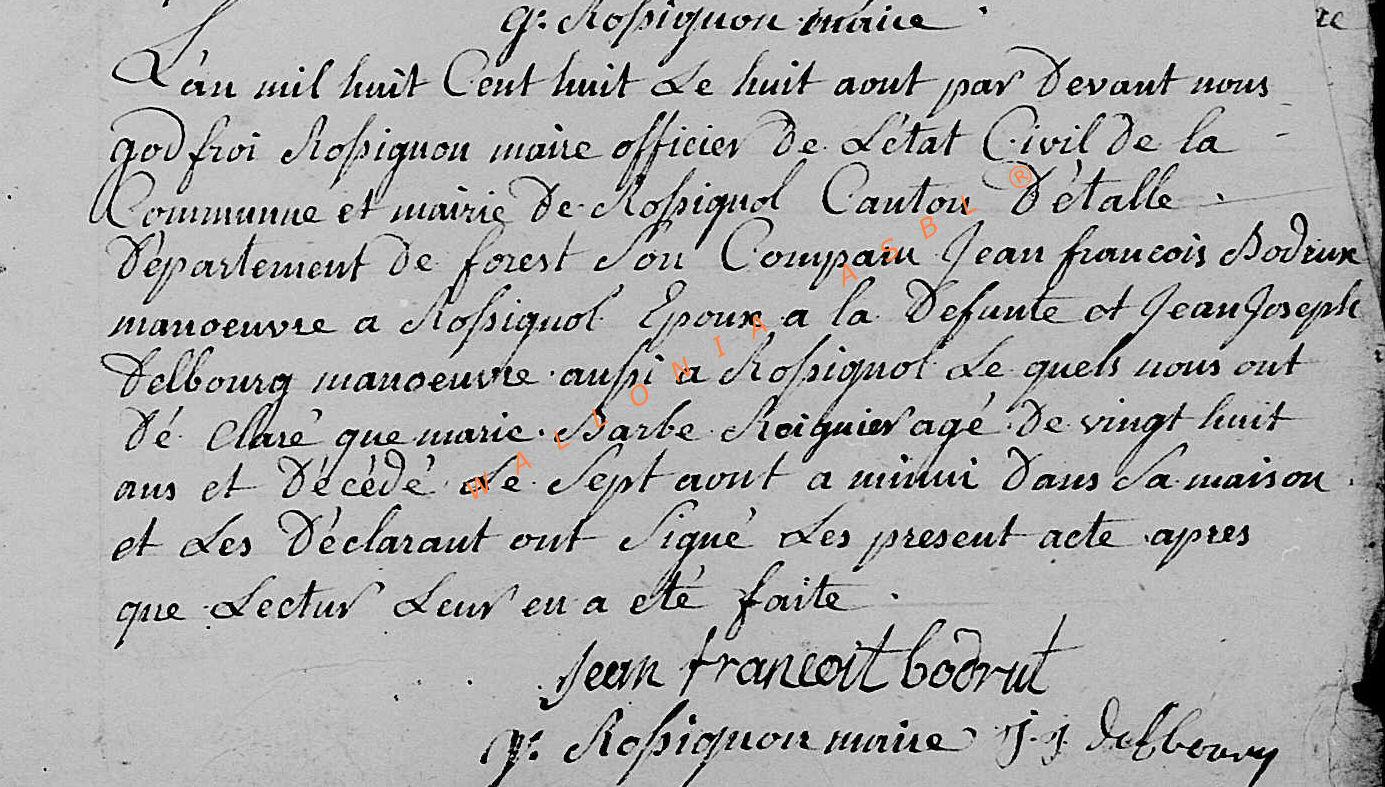 g: Rossignon maire
re
L'an mil huit Cent huit Le huit aout par Devant nous
godfroi Rossignon maire officier De L'etat Civil De la
Communne et mairie De Rossignol Canton D'étalle
Département De forest Son Comparu Jean francois Bodrux
manoeuvre a Rossignol Epoux a la Defunte et Jean Joseph
Delbourg manoeuvre aussi a Rossignol Le quels nous ont
Dé Claré que marie Barbe Roiguier agé De vingt huit
ans et Décédé Le Sept aout a minui Dans Sa maison
et Les Déclarant ont Signé Les present acte apres
que Lectur Leur en a eté faite
Jean francoit bodrut
g: Rossignon maire J. J. Delbourg
WALLONIA ASBL ®